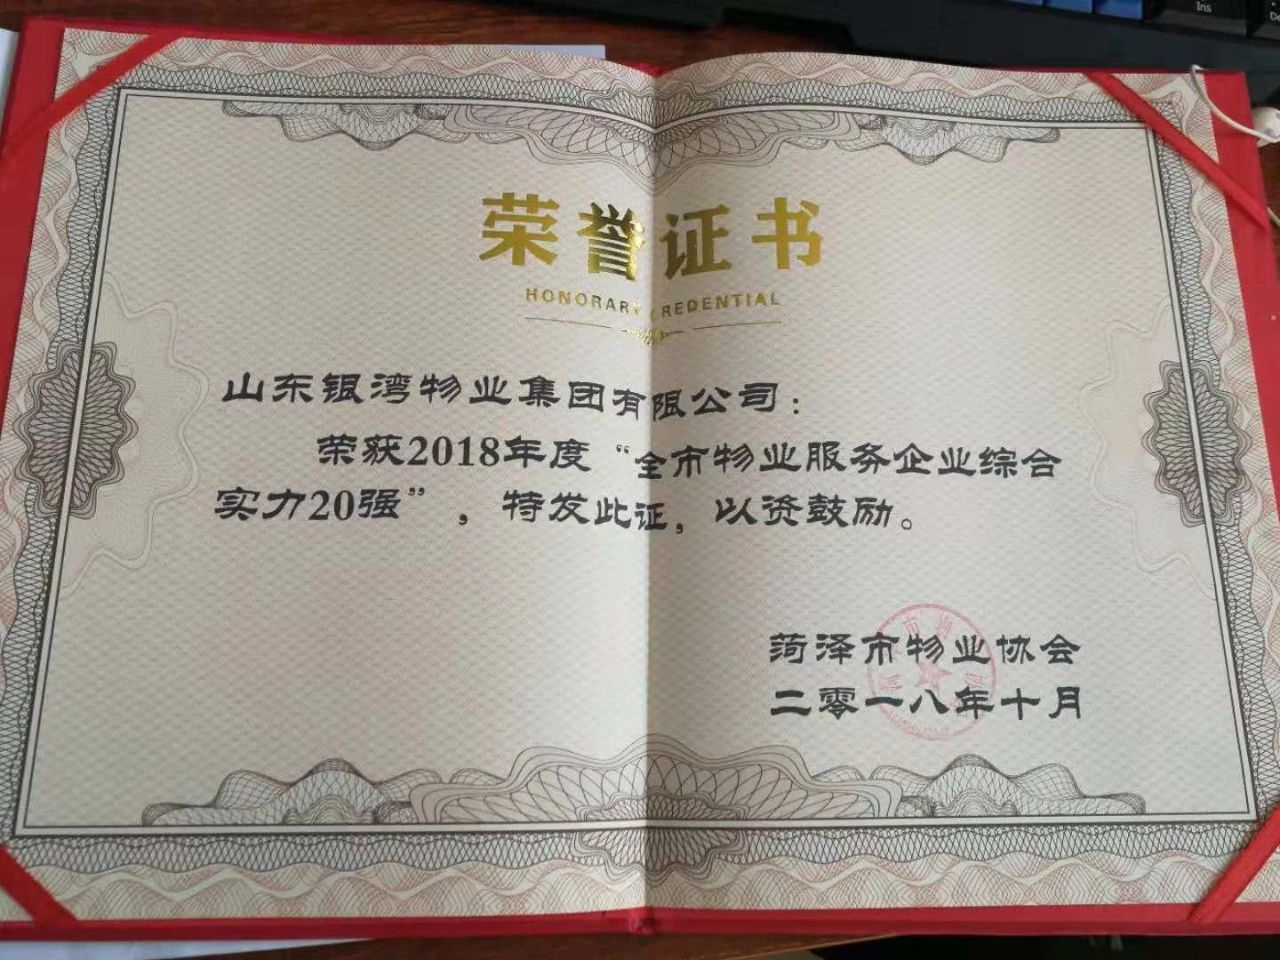 Ins
荣誉证书
HONORARY CREDENTIAL
山东银湾物业集团有限公司：
荣获2018年度“全市物业服务企业综合
实力20强”，特发此证，以资鼓励。
菏泽市物业协会
二零一八年十月